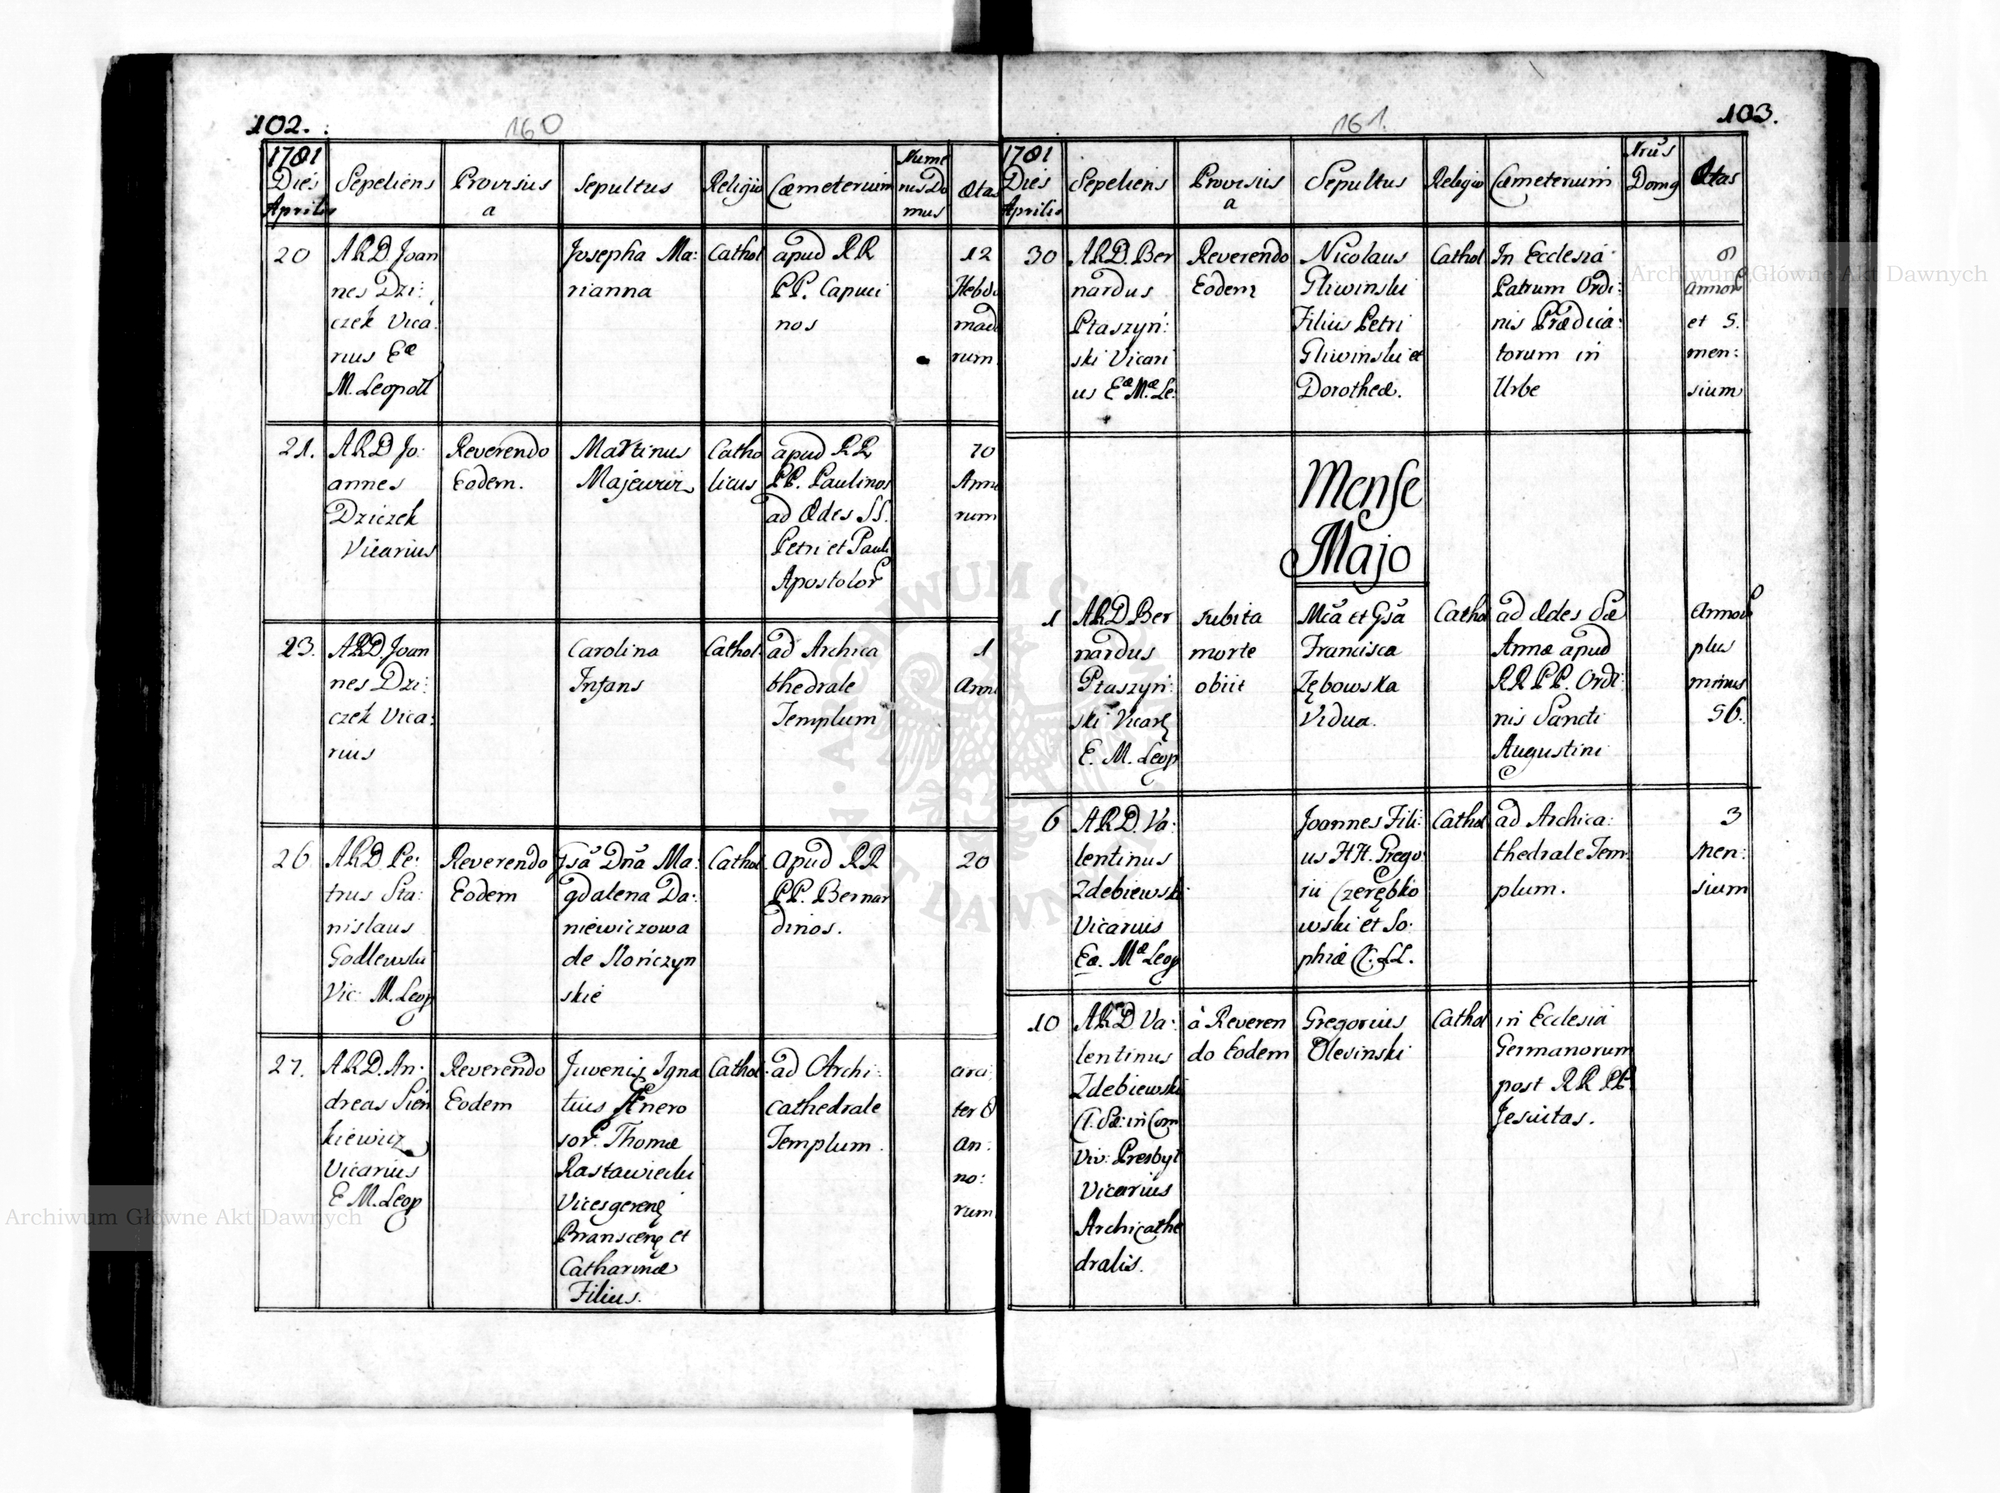 102.
160
1781
Dies
Aprilis
Sepeliens
Provisus
a
Sepultus
Religio
Cæmeterium
Nume
rus Do
mus
Ætas
20
ARD Joan
nes Dzi:
czek Vica:
rius Eæ
M. Leopoll
Josepha Ma:
rianna
Cathol
apud RR
PP. Capuci
nos
12
Hebdo
mada
rum
21.
ARD Jo:
annes
Dziczek
Vicarius
Reverendo
Eodem.
Martinus
Majewicz
Catho
licus
apud RR
PP. Paulinos
ad Ædes SS.
Petri et Pauli
Apostolor
70
Anno
rum
23.
ARD Joan
nes Dzi:
czek Vica:
rius
Carolina
Infans
Cathol.
ad Archica
thedrale
Templum
1
Anni
26
ARD. Pe:
trus Sta:
nislaus
Godlewski
Vic: M. Leop
Reverendo
Eodem
Gsa Dna Ma:
gdalena Da:
niewiczowa
de Kończyn
skie
Cathol.
apud RR
PP. Bernar
dinos.
20
27.
ARD. An:
dreas Sien
kiewicz
Vicarius
E M. Leop
Reverendo
Eodem
Juvenis Igna
tius Gener
sor. Thomæ
Rastawiecki
Vicesgerenę
Branscenę et
Catharinæ
Filius.
Cathol.
ad Archi:
cathedrale
Templum.
circi
ter 8
an:
no:
rum
161.
103.
1781
Dies
Aprilis
Sepeliens
Provisus
a
Sepultus
Religio
Cæmeterium
Nrus
Domq
Ætas
30
ARD. Ber
nardus
Ptaszyń:
ski Vicari
us Eæ Mæ Le.
Reverendo
Eodem
Nicolaus
Gliwinski
Filius Petri
Gliwinski et
Dorotheæ.
Cathol
In Ecclesia
Patrum Ordi:
nis Prædica:
torum in
Urbe
8
annor
et 5.
men:
sium
Mense
Majo
1
ARD Ber
nardus
Ptaszyń:
ski Vicarę
E. M. Leop
subita
morte
obiit
Mca et Gsa
Francisca
Zębowska
Vidua.
Cathol
ad Ædes Sæ
Annæ apud
RR PP. Ordi:
nis Sancti
Augustini
Annor
plus
minus
56.
6
ARD. Va:
lentinus
Zdebiewski
Vicarius
Eæ. Mæ Leop
Joannes Fili:
us HH. Grego:
rii Czerębko
wski et So:
phiæ C. LL.
Cathol
ad Archica:
thedrale Tem:
plum.
3
Men:
sium
10
ARD Va:
lentinus
Zdebiewski
CT. Sæ: in Com
Viv: Presbyt
Vicarius
Archicathe
dralis.
à Reveren
do Eodem
Gregorius
Olesinski
Cathol
in Ecclesia
Germanorum
post RR PP.
Jesuitas.
Archiwum Główne Akt Dawnych
Archiwum Główne Akt Dawnych